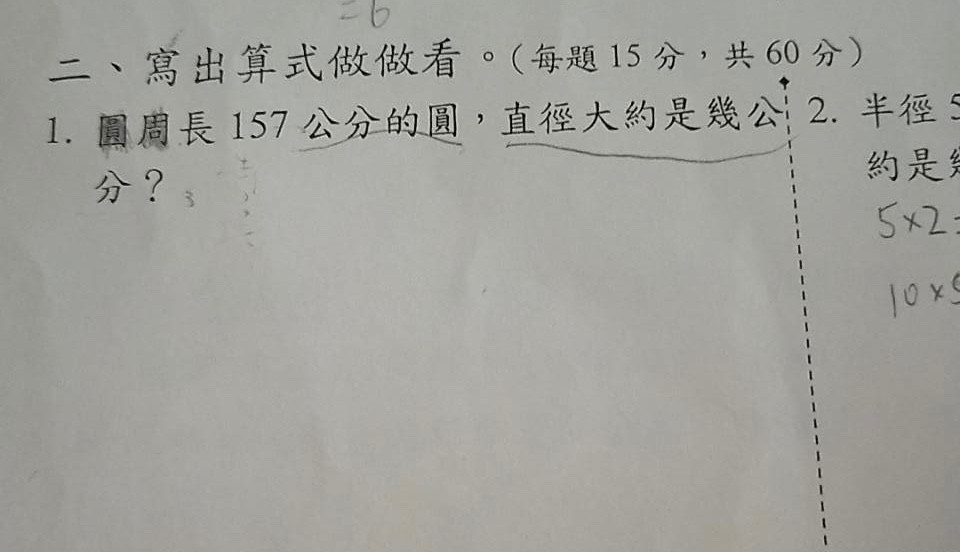 =6
二、寫出算式做做看。(每題15分，共60分)
1. 圓周長157公分的圓，直徑大約是幾公
分？
2. 半徑5
約是
5×2=
10×